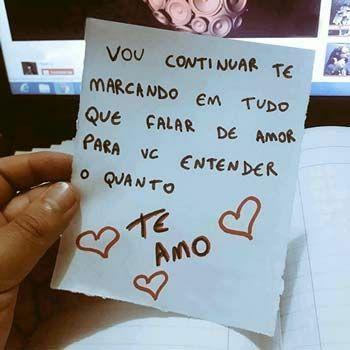 VOU CONTINUAR TE
MARCANDO EM TUDO
QUE FALAR DE AMOR
PARA VC ENTENDER
O QUANTO
TE
AMO